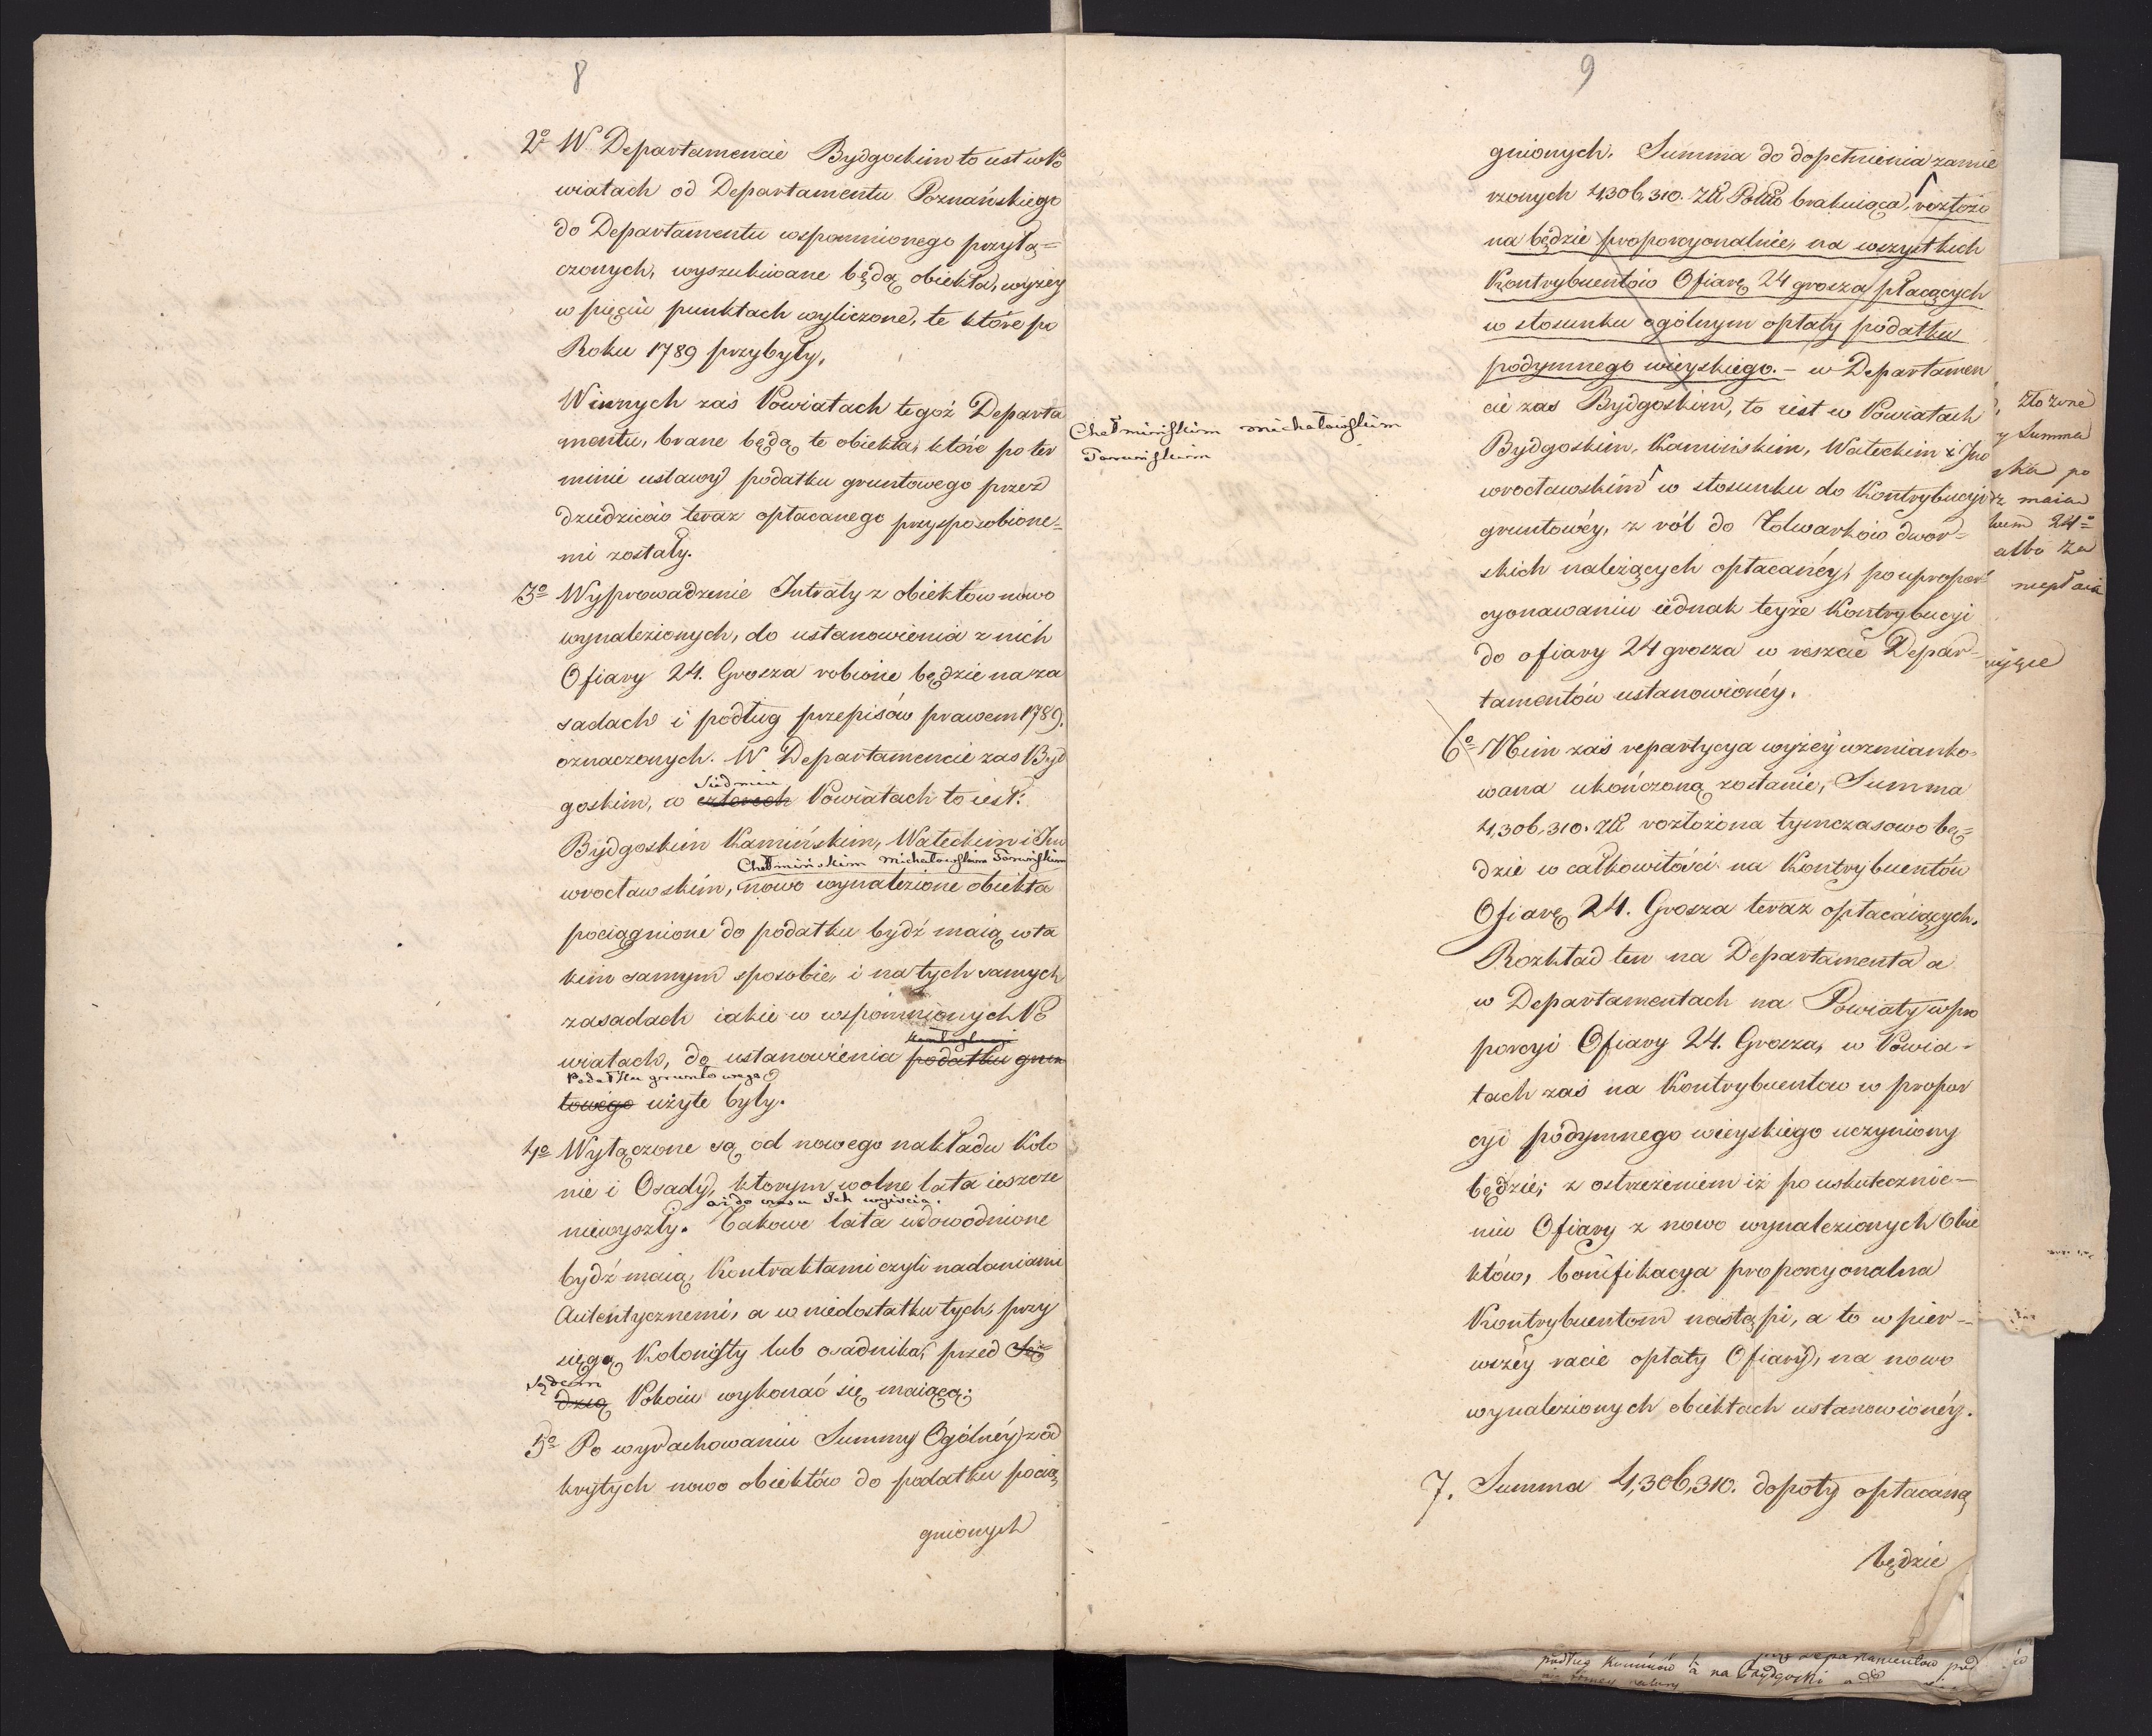 8
2º W Departamencie Bydgoskim to iest w Po
wiatach od Departamentu Poznańskiego
do Departamentu wspomnionego przyłą=
czonych, wyszukiwane będą obiekta, wyżey
w pięciu punktach wyliczone, te które po
Roku 1789 przybyły.
W innych zaś Powiatach tegoż Departa
mentu, brane będą te obiekta, które po ter
minie ustawy podatku gruntowego przez
dziedziców teraz opłacanego przysposobione=
mi zostały.
3º Wyprowadzenie Intraty z obiektów nowo
wynalezionych, do ustanowienia z nich
Ofiary 24. Grosza robione będzie na za
sadach i podług przepisów prawem 1789.
oznaczonych. W Departamencie zaś Byd
Siedmiu
goskim, w czterech Powiatach to iest:
Bydgoskim Kamińskim, Wałeckim i Ino
Chełmińskim Michałowskim Toruńskim
wrocławskim, nowo wynalezione obiekta
pociągnione do podatku bydź maią w ta
kim samym sposobie, i na tych samych
zasadach iakie w wspomnionych Po
kontrybucyi
wiatach, do ustanowienia podatku grun
Podatku gruntowego
towego użyte były.
4º Wyłączone są od nowego nakładu Kolo
nie i Osady, którym wolne lata ieszcze
aż do czasu Ich wyiścia.
niewyszły. Takowe lata udowodnione
bydź maią, Kontraktami czyli nadaniami
Autentycznemi, a w niedostatku tych, przy
sięgą Kolonisty lub osadnika, przed Sę=
Sądem
dzią Pokoiu wykonać się maiącą;
5º Po wyrachowaniu Summy Ogólnéy z od
krytych nowo obiektów do podatku pocią
gnionych
9
gnionych. Summa do dopełnienia zamie
rzonych 4,306,310. Zł Polło brakuiąca, rozłożo
na będzie proporcyonalnie, na wszystkich
Kontrybuentów Ofiarę 24 grosza płacących
w stosunku ogólnym opłaty podatku
podymnego wieyskiego. – w Departamen
cie zaś Bydgoskim, to iest w Powiatach
Chełmińskim Michałowskim
Toruńskim
Bydgoskim, Kamińskim, Wałeckim i Ino
wrocławskim w stosunku do Kontrybucyi
gruntowéy, z ról do Folwarków dwor=
skich należących opłacanéy, po upropor
cyonawaniu iednak teyże Kontrybucyi
do ofiary 24 grosza w reszcie Depar=
tamentów ustanowionéy.
6º Nim zaś repartycya wyżéy wzmianko=
wana ukończoną zostanie, Summa
4,306,310. Zł rozłożona tymczasowo bę=
dzie w całkowitości na Kontrybuentów
Ofiarę 24. Grosza teraz opłacaiących.
Rozkład ten na Departamenta a
w Departamentach na Powiaty w pro
porcyi Ofiary 24. Grosza, w Powia=
tach zaś na Kontrybuentów w propor
cyi podymnego wieyskiego uczyniony
będzie; z ostrzeżeniem iż po uskutecznie=
niu Ofiary z nowo wynalezionych Obie
któw, bonifikacya proporcyonalna
Kontrybuentom nastąpi, a to w pier=
wszéy racie opłaty Ofiary, na nowo
wynalezionych obiektach ustanowionéy.
7. Summa 4,306,310. dopóty opłacaną
będzie
złożone
y Summa
ska po
dz maia
kiem 24º
albo za
niepłacą
wyżée
podług Kominów na Bydgoski